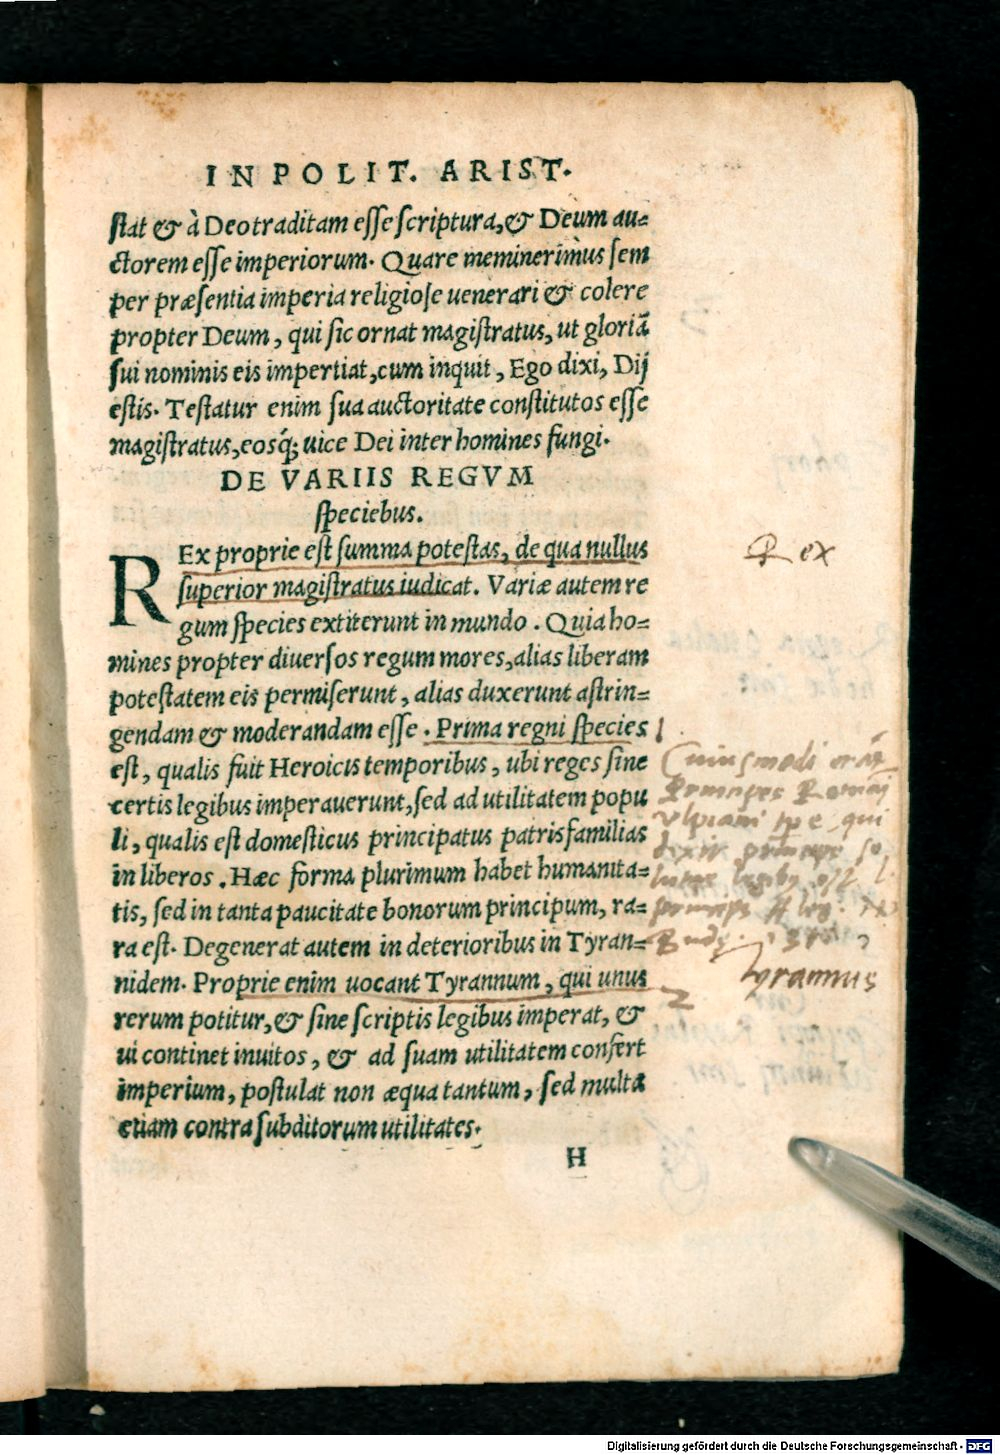 IN POLIT. ARIST.
ſtat & à Deo traditam eſſe ſcriptura, & Deum au=
ctorem eſſe imperiorum. Quare meminerimus ſem
per præſentia imperia religioſe uenerari & colere
propter Deum, qui ſic ornat magiſtratus, ut gloriā
ſui nominis eis impertiat, cum inquit, Ego dixi, Dij
eſtis. Teſtatur enim ſua auctoritate conſtitutos eſſe
magiſtratus, eosq́; uice Dei inter homines fungi.
DE VARIIS REGVM
ſpeciebus.
REx proprie eſt ſumma poteſtas, de qua nullus
ſuperior magiſtratus iudicat. Variæ autem re
gum ſpecies extiterunt in mundo. Quia ho=
mines propter diuerſos regum mores, alias liberam
poteſtatem eis permiſerunt, alias duxerunt aſtrin=
gendam & moderandam eſſe. Prima regni ſpecies
eſt, qualis fuit Heroicis temporibus, ubi reges ſine
certis legibus imperauerunt, ſed ad utilitatem popu
li, qualis eſt domeſticus principatus patrisfamilias
in liberos. Hæc forma plurimum habet humanita=
tis, ſed in tanta paucitate bonorum principum, ra=
ra eſt. Degenerat autem in deterioribus in Tyran=
nidem. Proprie enim uocant Tyrannum, qui unus
rerum potitur, & ſine ſcriptis legibus imperat, &
ui continet inuitos, & ad ſuam utilitatem confert
imperium, poſtulat non æqua tantum, ſed multa
etiam contra ſubditorum utilitates.
H
Rex
1
Cuiusmodi erāt
Principes Romani
Ulpiani qui
dixit principē so
princeps ff leg.
Tyrannus
2
Digitalisierung gefördert durch die Deutsche Forschungsgemeinschaft - DFG